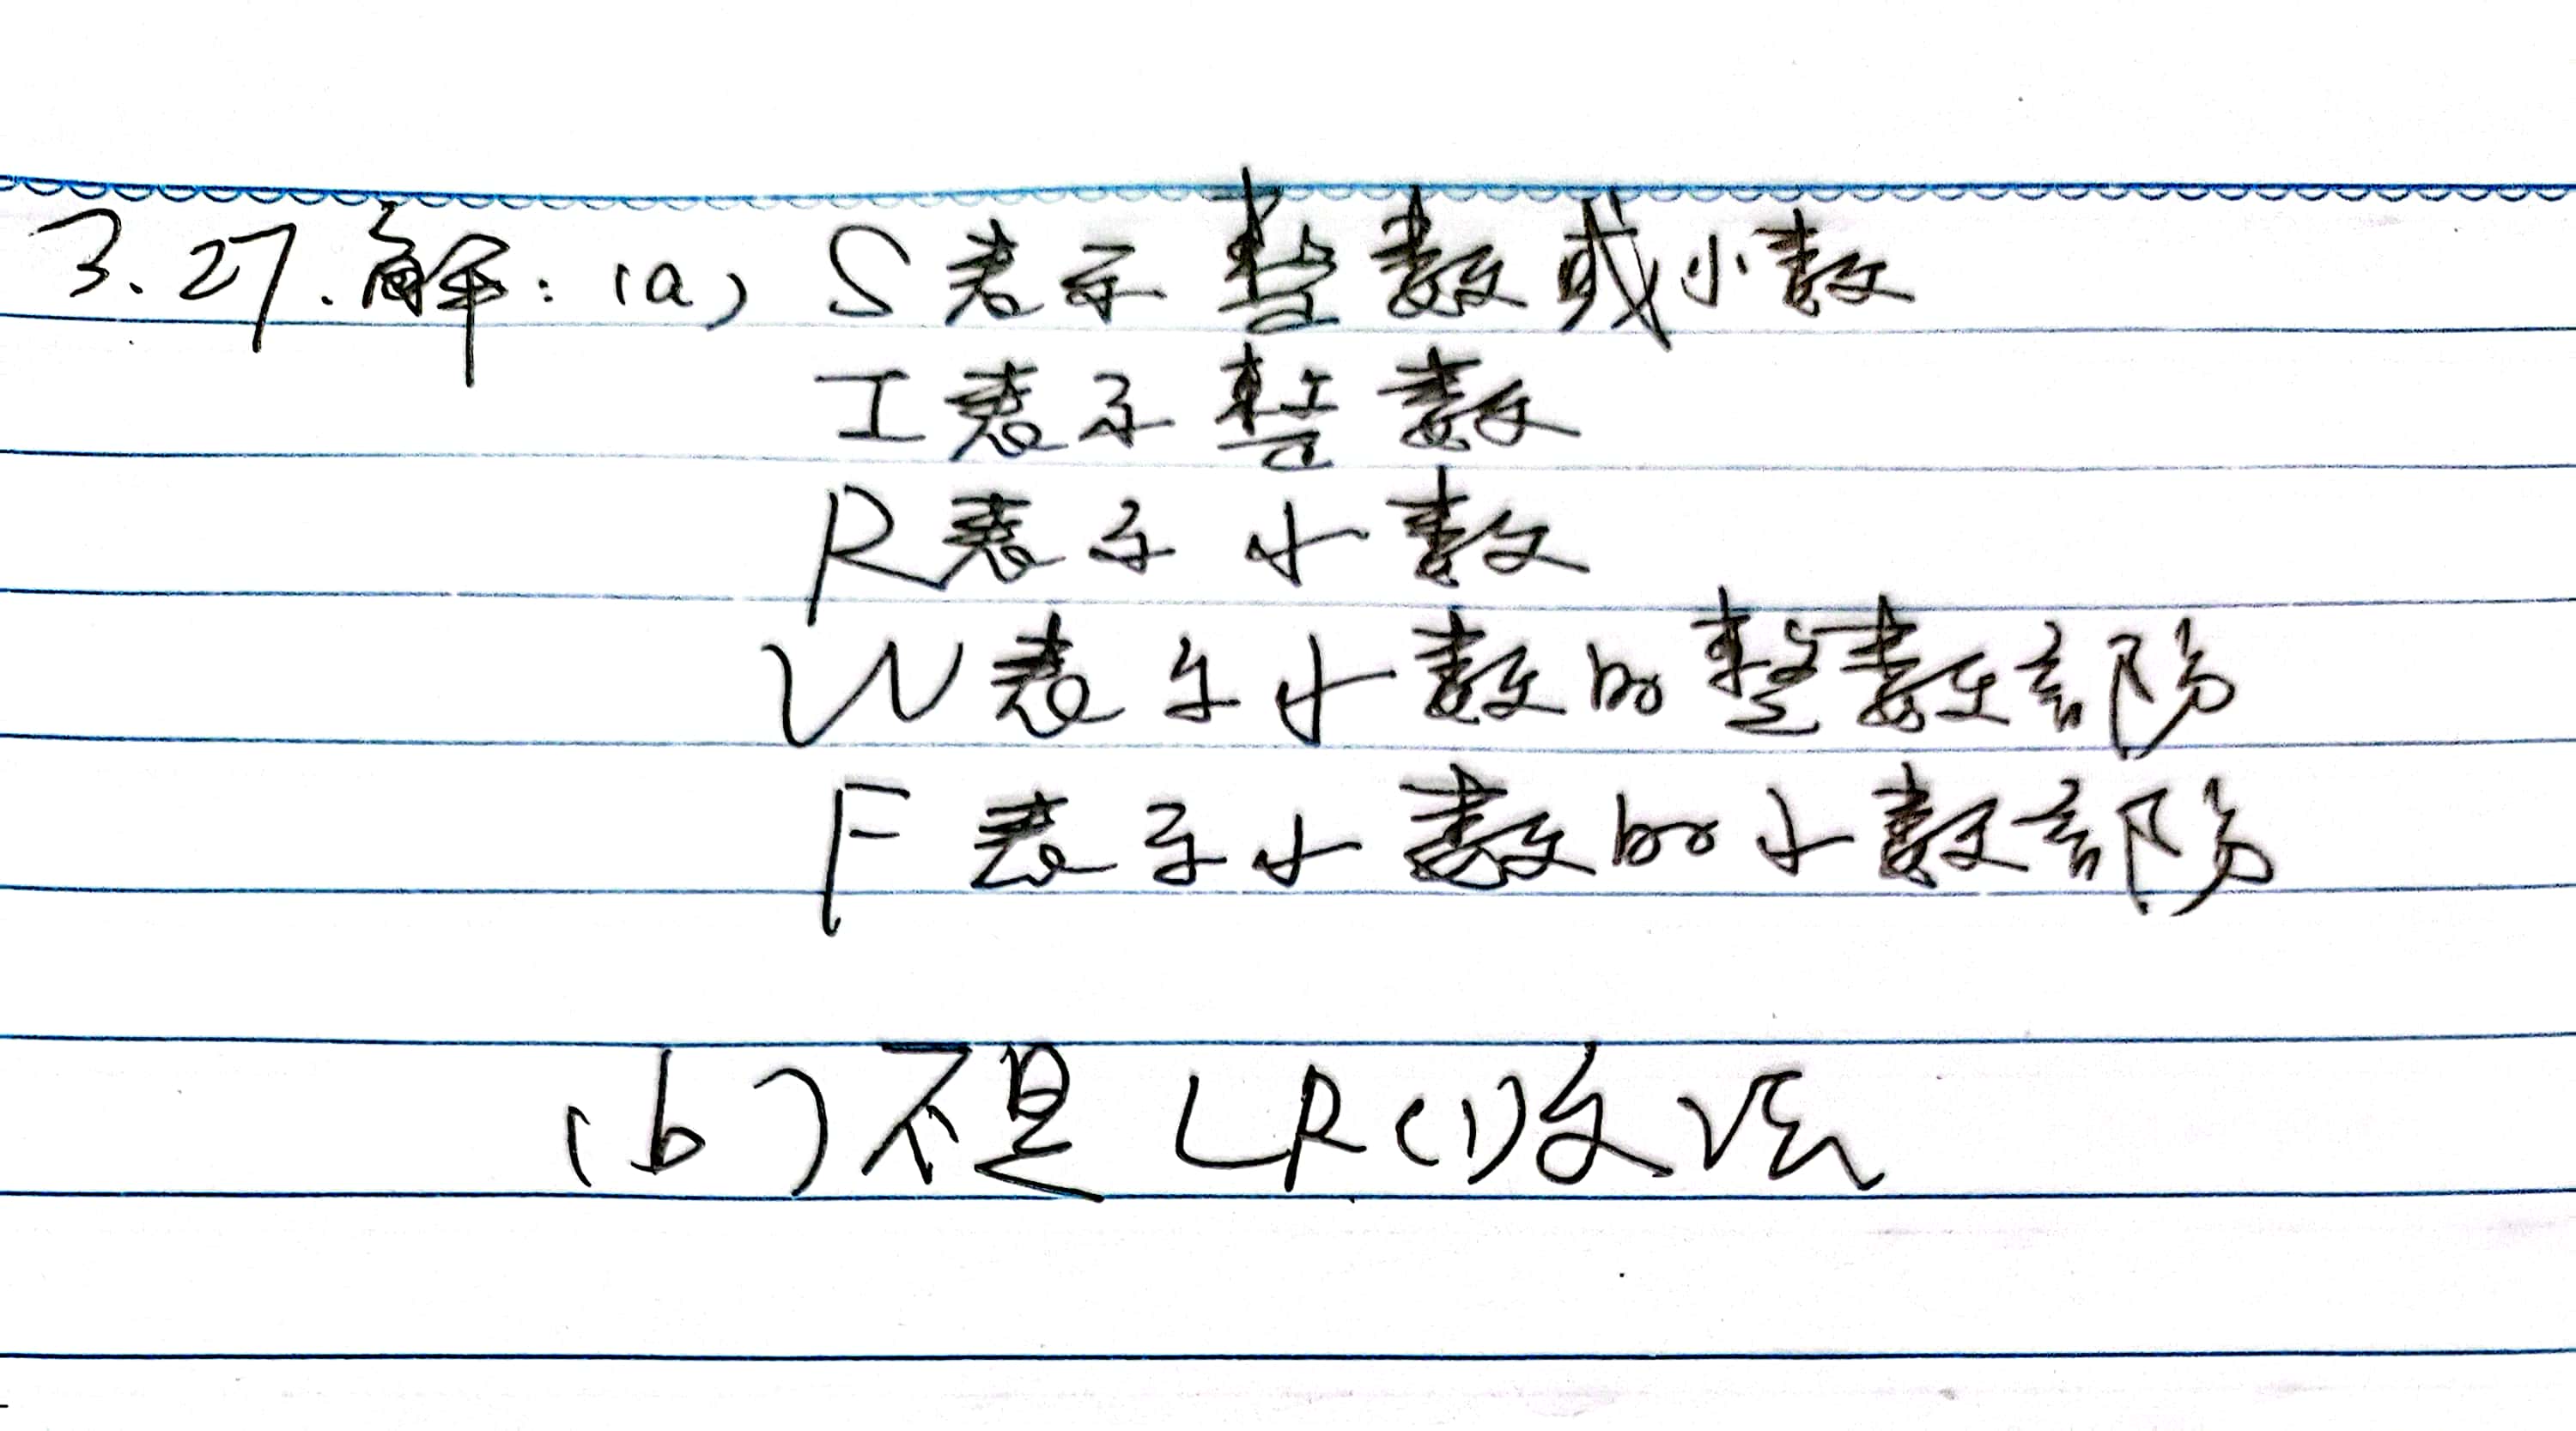 3.27.解:(a) S表示整数或小数
I表示整数
R表示小数
W表示小数的整数部分
F表示小数的小数部分
(b)不是LR(1)文法